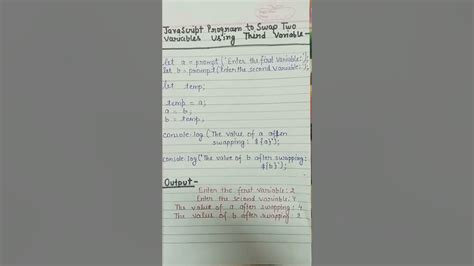 JavaScript Program to Swap Two
Variables Using Third Variable-
let a = prompt('Enter the first Variable:');
let b = prompt('Enter the second variable:');
let temp;
temp = a;
a = b;
b = temp;
console.log('The value of a after
swapping: ${a}');
console.log('The value of b after swapping:
${b}');
Output-
Enter the first variable: 2
Enter the second variable: 4
The value of a after swapping: 4
The value of b after swapping: 2